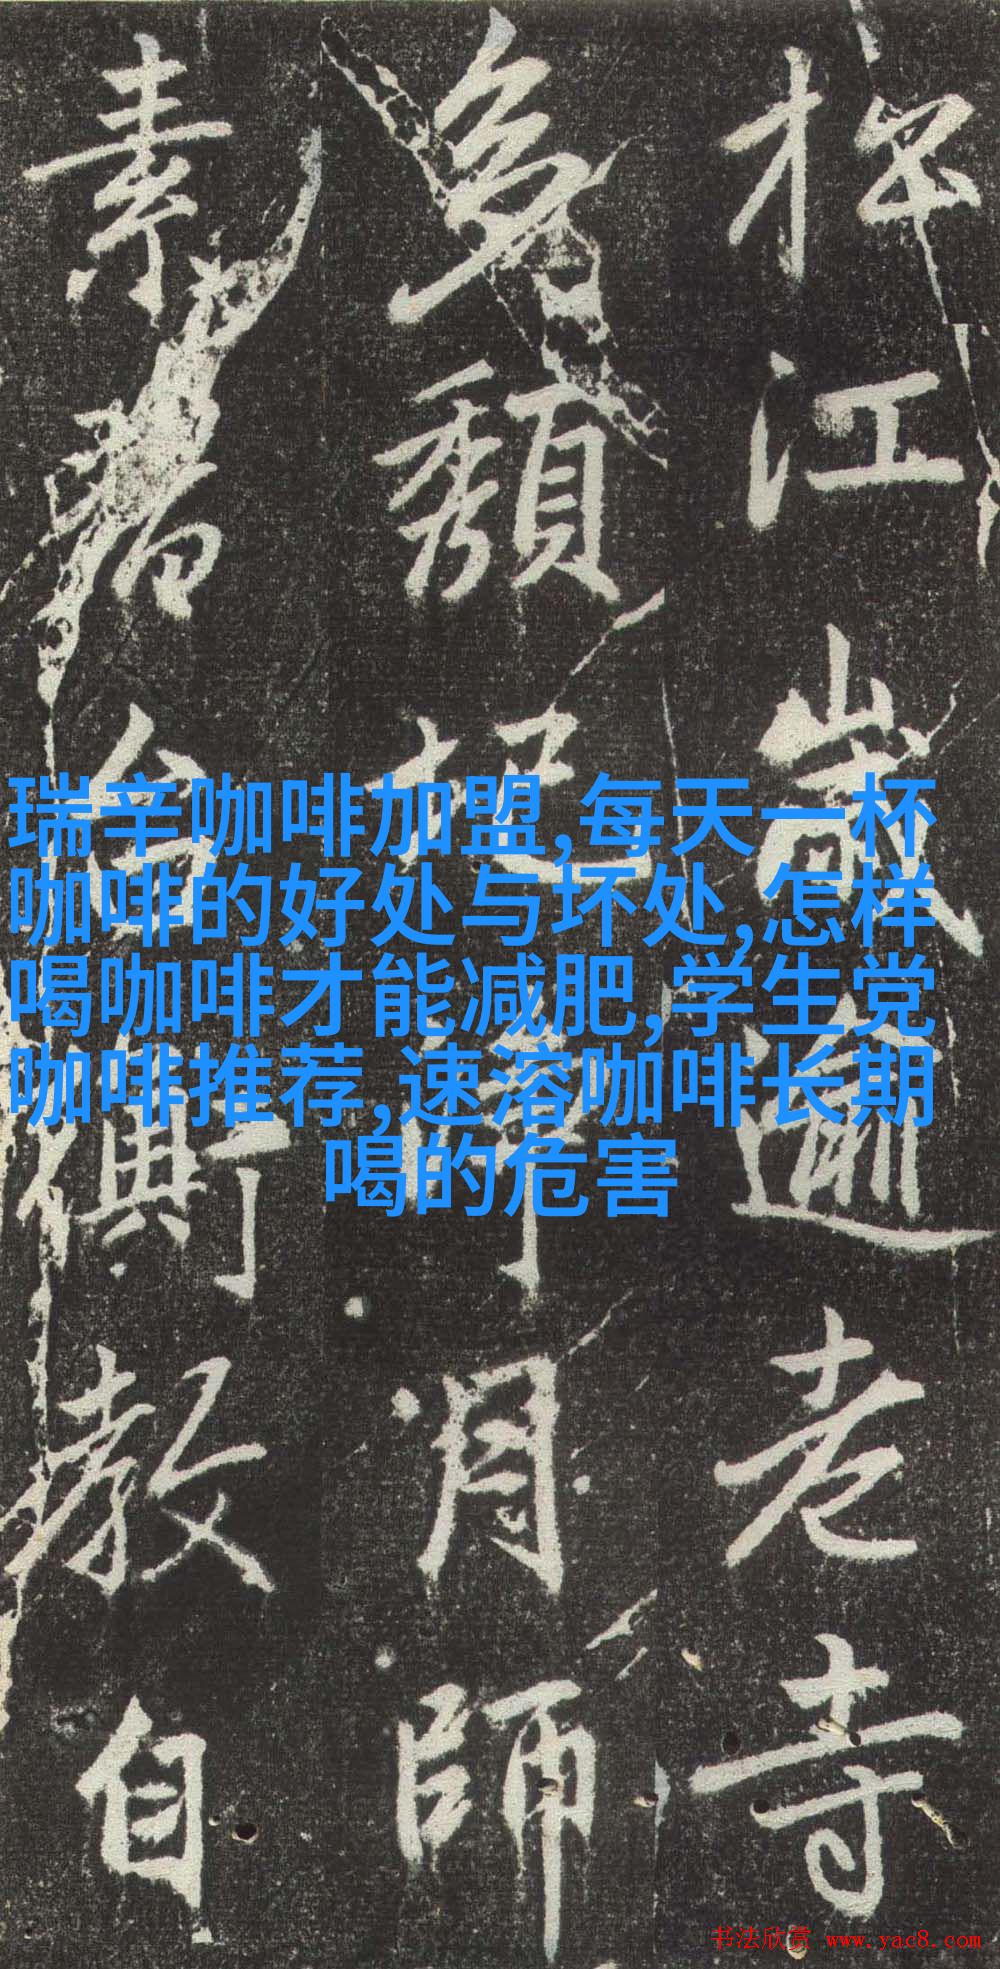 瑞辛咖啡加盟,每天一杯
咖啡的好处与坏处,怎样
喝咖啡才能减肥,学生党
咖啡推荐,速溶咖啡长期
喝的危害
江
歲
逾
老
寺
穎
起
月
師
素
俱
教
自
书法欣赏 www.yac8.com